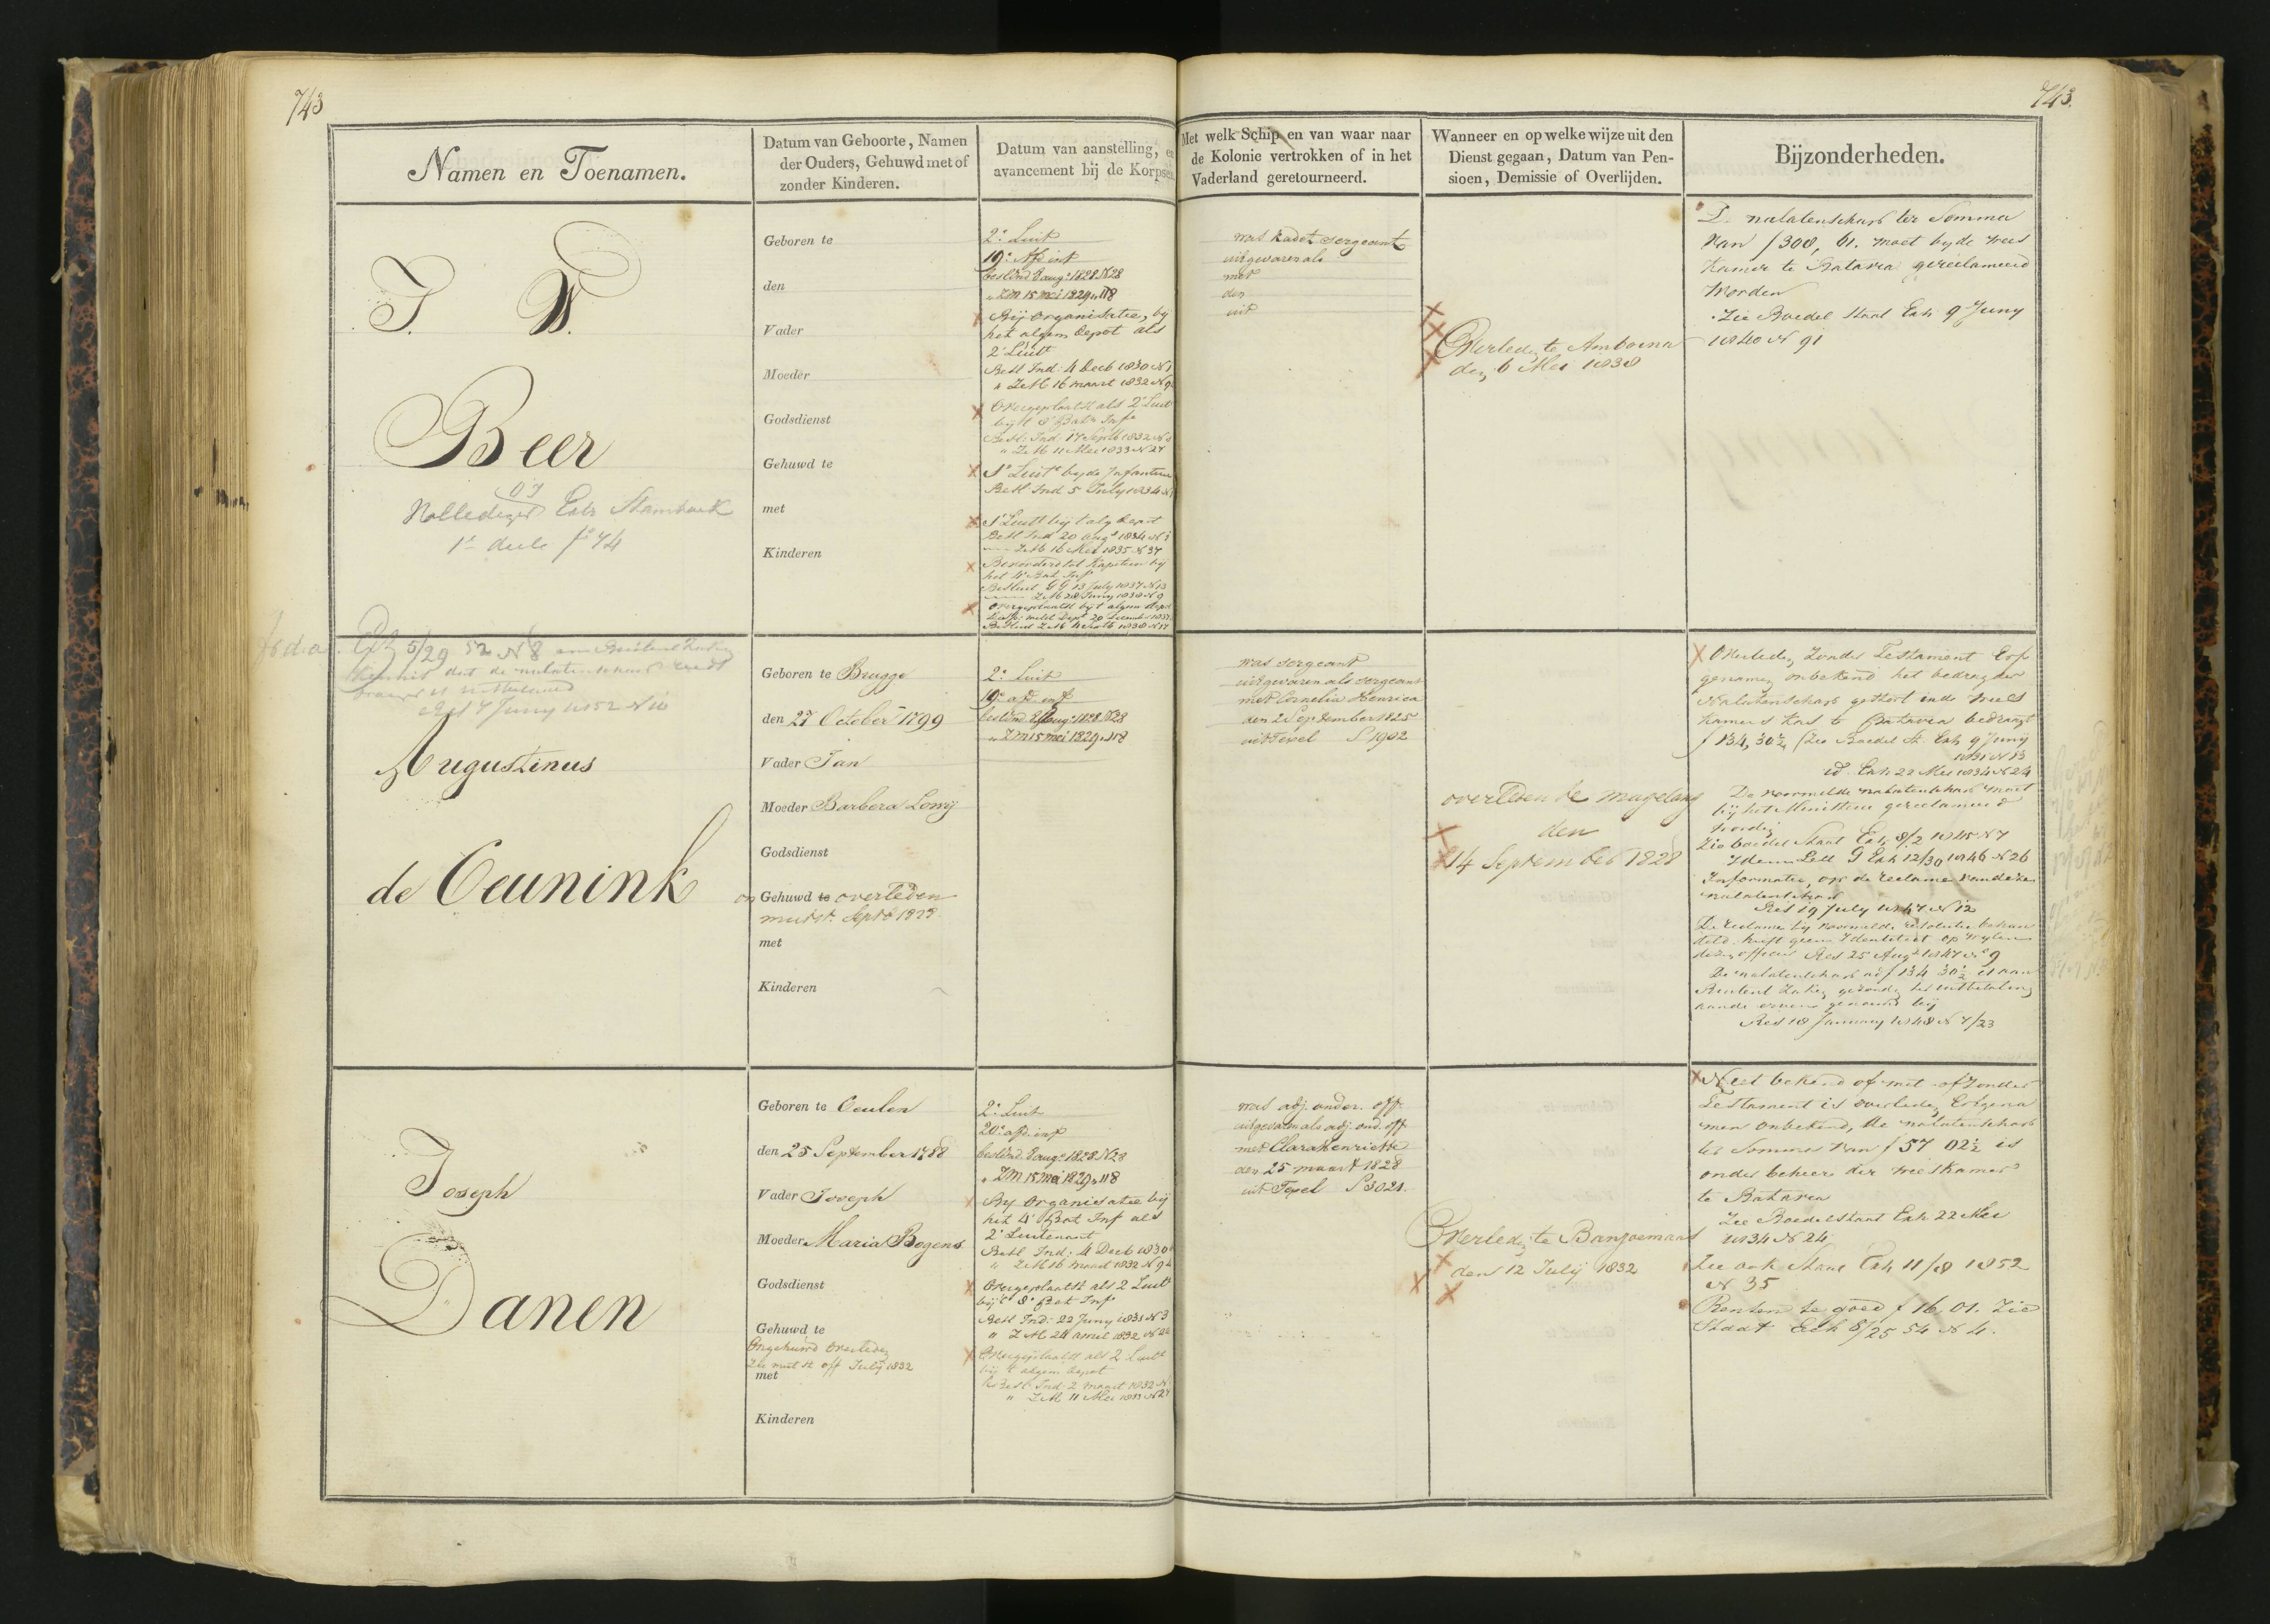 743
743.
Namen en Toenamen.
Datum van Geboorte, Namen
der Ouders, Gehuwd met of
zonder Kinderen.
Datum van aanstelling, en
avancement bij de Korpsen
Met welk Schip en van waar naar
de Kolonie vertrokken of in het
Vaderland geretourneerd.
Wanneer en op welke wijze uit den
Dienst gegaan, Datum van Pen-
sioen, Demissie of Overlijden.
Bijzonderheden.
J. W.
Beer
Extr Stamboek
1e deele fo 74
Geboren te
den
Vader
Moeder
Godsdienst
Gehuwd te
met
Kinderen
2e Luit
19e Afd inf
besl ind 8 aug 1828 N 28
" ZM 15 mei 1829 " 118
Bij Organisatie, bij
het algem depot als
2e Luit
Besl Ind: 4 Decb 1830 N
" ZM 16 maart 1832 N
Overgeplaatst als 2e Luit
bij 't 8e Bat Inf
Besl: Ind: 17 Septb 1832 N
" ZM 11 Mei 1833 N 27
1e Luit bij de Infanterie
Besl Ind 5 July 1834 N
1e Luit bij 't alg depot
Besl Ind 20 Aug 1834 N
ZM 16 Mei 1835 N 37
Bevorderd tot Kapitein bij
het 4e Bat Inf
Besluit GG 13 July 1837 N 13
ZM 28 Juny 1838 N 9
Overgeplaatst bij 't algem depot
was kadet sergeant
uitgevaren als
met
den
uit
Overleden te Amboina
den 6 Mei 1838
De nalatenschap ter Somma
van ƒ 308, 61. moet by de wees
kamer te Batavia gereclameerd
worden
Zie Boedel Staat Exh 9 Juny
1840 N 91
Exh 5/29 52 N 8
Augustinus
de Ceunink
Geboren te Brugge
den 27 October 1799
Vader Jan
Moeder Barbera Lowij
Godsdienst
on Gehuwd te overleden
mutst. Septb 1828.
met
Kinderen
2e Luit
19e afd. inf
besl ind. 8 aug 1828 N 28
" ZM 15 mei 1829 " 118
was sergeant
uitgevaren als sergeant
met Cornelia Henrica
den 2 September 1825
uit Texel S 1902
overleden te magelang
den
14 September 1828
Overleden zonder Testament Erf
genamen onbekend het bedrag der
Nalatenschap gestort in de wees
kamers kas te Batavia bedraagt
ƒ 134, 30½ (Zie Boedel St. Exh 9 Juny
1831 N 13
id. Exh 22 Mei 1834 N 24
De voormelde nalatenschap moet
bij het Ministerie gereclameerd
worden
Zie boedel Staat Exh 8/2 1845 N 7
Idem Exh 12/30 1846 N 26
Informatie, op de reclame van deze
nalatenschap
Res 19 July 1847 N 12
De reclame bij voormelde resolutie behan
deld heeft geene Identiteit op wylen
dezen officier Res 25 Aug 1847 N 9
De nalatenschap ad ƒ 134 30½ is aan
Res 18 January 1848 N 7/23
Joseph
Danen
Geboren te Ceulen
den 25 September 1788
Vader Joseph
Moeder Maria Bogens
Godsdienst
Gehuwd te
Ongehuwd Overleden
Zie mut st off July 1832
met
Kinderen
2e Luit
20e afd. inf
besl ind. 8 aug 1828 N 28
" ZM 15 mei 1829 " 118
By Organisatie bij
het 4e Bat Inf als
2e Luitenant
Besl Ind: 4 Decb 1830
" ZM 16 maart 1832 N 94
Overgeplaatst als 2 Luit
bij 't 8e Bat Inf
Besl Ind: 22 Juny 1831 N 3
" ZM 24 april 1832 N
Overgeplaatst als 2 Luit
bij 't algem depot
Besl. Ind: 2 maart 1832 N
" ZM 11 Mei 1833 N 27
was adj. onder. off.
uitgevaren als adj. ond. off
met Clara Henriette
den 25 maart 1828
uit Texel S 3021.
Overleden te Banjoemaas
den 12 July 1832
Niet bekend of met of zonder
Testament is overleden Erfgena
men onbekend, de nalatenschap
ter Somma van ƒ 57 02½ is
onder beheer der weeskamer
te Batavia
Zie Boedelstaat Exh 22 Mei
1834 N 24
Zie ook Staat Exh 11/8 1852
N. 35
Renten te goed ƒ 16,01. Zie
Staat Exh 8/25 54 N 4.